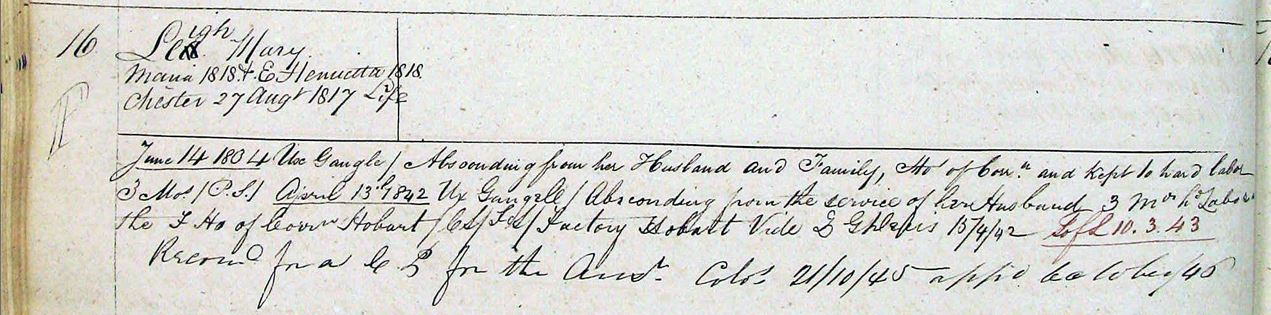 16 Leigh Mary
Maria 1818 & E Henrietta 1818
Chester 27 Augt 1817 Life
June 14 1834 Ux Gangle / Absconding from her Husband and Family, Ho of Corn. and Kept to hard labor
3 Mos. / P.S. / April 13th 1842 Ux Gangell / Absconding from the service of her Husband 3 Mos hd Labour
The F Ho of Corrn Hobart / Factory Hobart Vide 15/4/42 10.3.43
Recomd for a C P for the Aust. Colos 21/10/45 appd